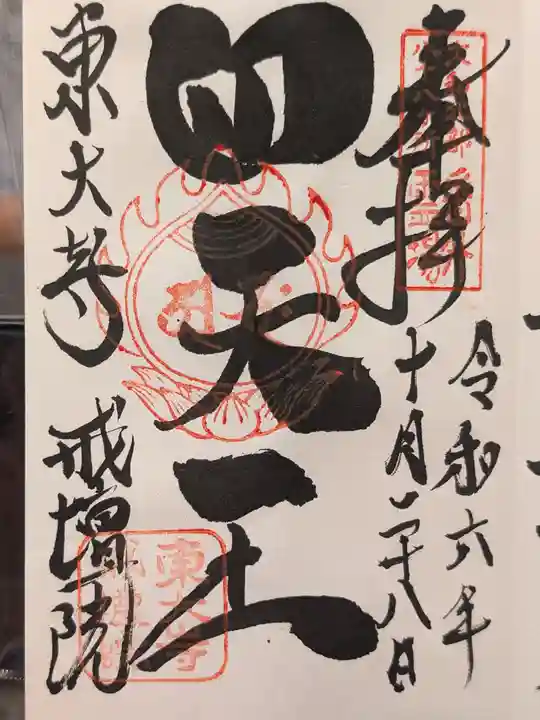 奉拝
令和六年
十月二十八日
四天王
東大寺
戒壇院
東大寺
戒壇院